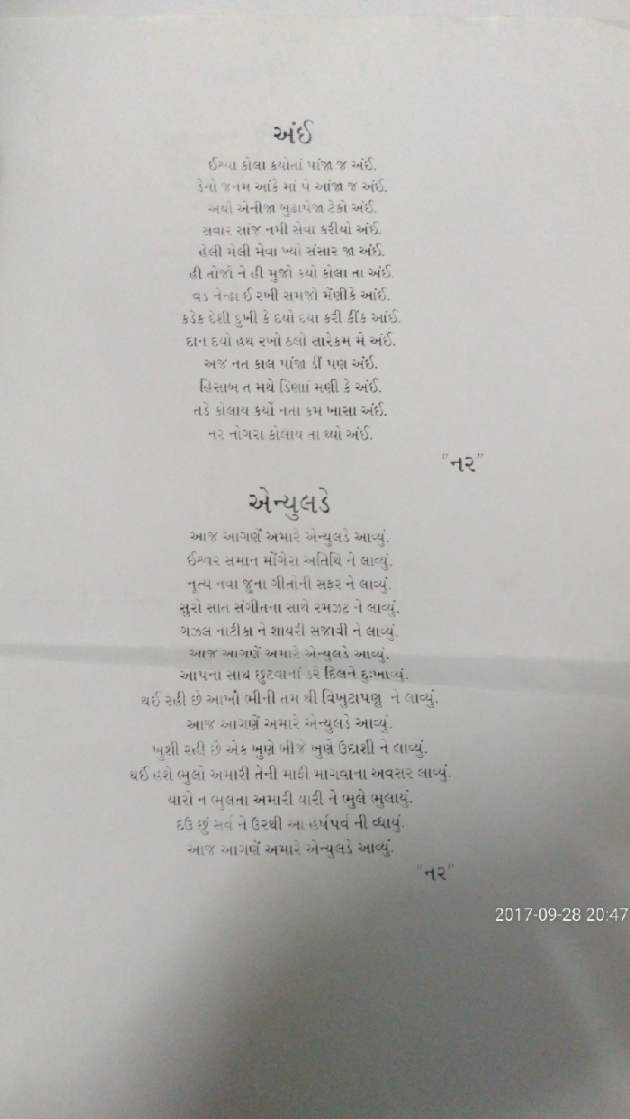 અંઈ
ઈશ્યા કોલા કયોતાં પાંજા જ અંઈ.
ડેનો જનમ આંકે માં પે આંજા જ અંઈ.
અયો એનીજા બુઢાપેજા ટેકો અંઈ.
સવાર સાંજ નમી સેવા કરીયો અંઈ.
હેલી મેલી મેવા ખ્યો સંસાર જા અંઈ.
હી તોજો ને હી મુજો કયો કોલા તા અંઈ.
વડ નેન્ઢા ઈ રખી સમજો મેંણીકે આંઈ.
કડેક દેશી દુખી કે દયો દયા કરી કીંક આંઈ.
દાન દયો હથ રખો ઠલો સારેકમ મે અંઈ.
અજ નત કાલ પાંજા ડીં પણ અંઈ.
હિસાબ ત મથે ડિણાાં મણી કે અંઈ.
તડે કોલાય કર્યો નતા કમ ખાસા અંઈ.
નર નોગરા કોલાય તા થ્યો અંઈ.
"નર"
એન્યુલડે
આજ આગણેં અમારે એન્યુલડે આવ્યું.
ઈશ્વર સમાન મોંગેરા અતિથિ ને લાવ્યું.
નૃત્ય નવા જુના ગીતોની સફર ને લાવ્યું.
સુરો સાત સંગીતના સાથે રમઝટ ને લાવ્યું.
ગઝલ નાટીકા ને શાયરી સજાવી ને લાવ્યું.
આજ આગણેં અમારે એન્યુલડે આવ્યું.
આપના સાથ છુટવાનાં ડરે દિલને દુઃખાવ્યું.
થઈ રહી છે આખોં ભીની તમ થી વિખુટાપણુ ને લાવ્યું.
આજ આગણેં અમારે એન્યુલડે આવ્યું.
ખુશી રહી છે એક ખુણે બીજે ખુણે ઉદાશી ને લાવ્યું.
થઈ હશે ભુલો અમારી તેની માફી માગવાના અવસર લાવ્યું.
યારો ન ભુલતા અમારી યારી ને ભુલે ભુલાયું.
દઉ છું સર્વ ને ઉરથી આ હર્ષપર્વ ની વ્ધાયું.
આજ આગણેં અમારે એન્યુલડે આવ્યું.
"નર"
2017-09-28 20:47